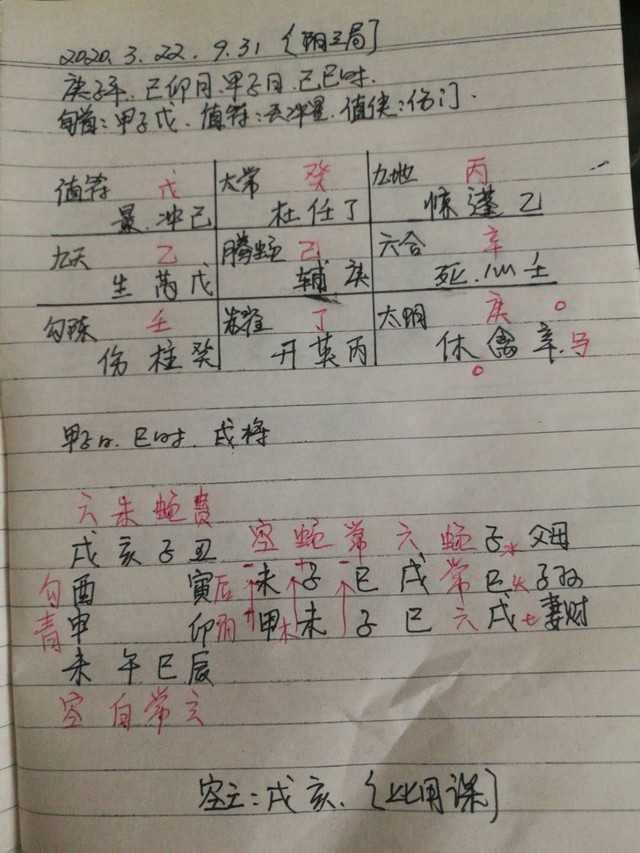 2020.3.22.9.31 (阳三局]
庚子年. 己卯月. 甲子日. 己巳时.
旬首: 甲子戊. 值符: 天冲星. 值使: 伤门.
值符 戊 太常 癸 九地 丙
景.冲己 杜任丁 惊蓬乙
九天 乙 腾蛇 己 六合 辛
生芮戊 辅庚 死.心壬
勾陈 壬 朱雀 丁 太阴 庚 o
伤柱癸 开英丙 休禽辛.马
o
甲子日. 巳时. 戌将
六朱蛇贵 空蛇常六蛇子水父母
戌亥子丑
勾酉 寅后 未子巳戌常巳火子孙
青申 卯阴 甲木未子巳六戌土妻财
未午巳辰
空白常玄
空亡: 戌亥. [比用课]